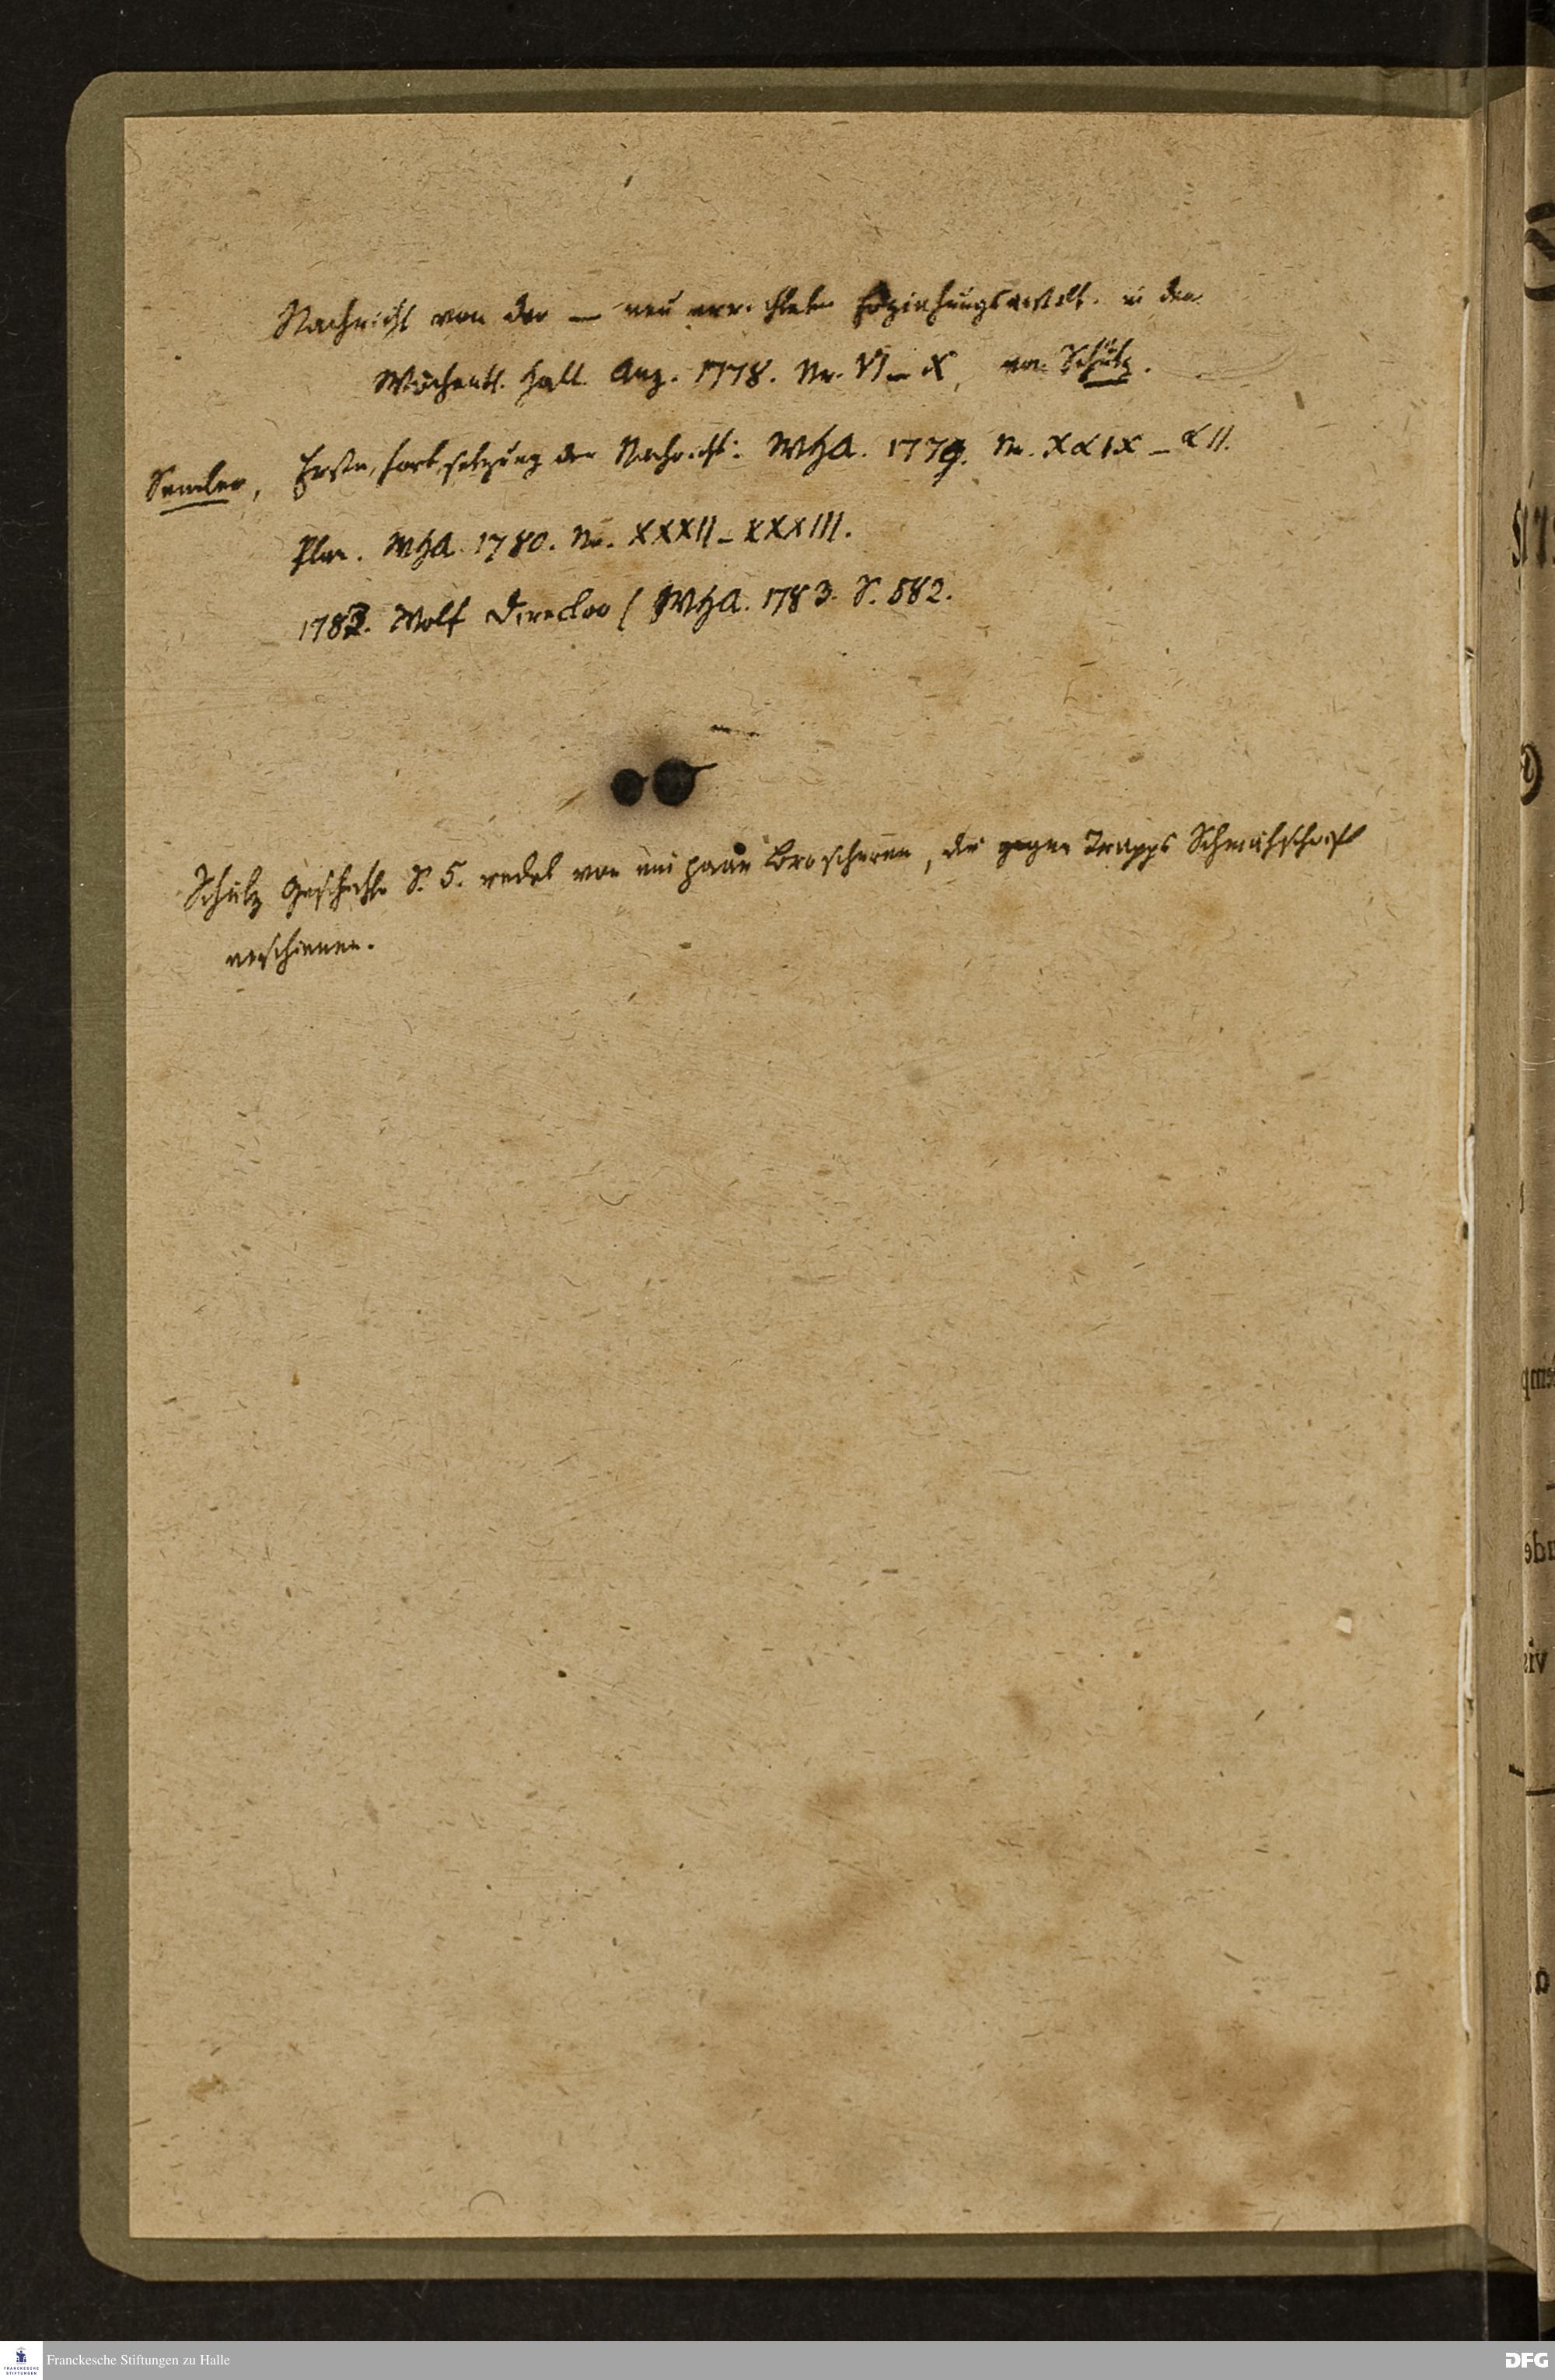 Nachricht von der — neu errichteten Erziehungsanstalt. in den
Wöchentl. Hall. Anz. 1778. Nr. VI – X, von Schütz.
Semler, Erste Fortsetzung der Nachricht: WHA. 1779. Nr. XXIX – XII.
Plan. WHA. 1780. Nr. XXXII – XXXIII.
1783. Wolf Director (WHA. 1783. S. 582.
Schütz Geschichte S. 5. redet von ein paar Broschüren, die gegen Trapps Schmähschrift
erschienen.
Franckesche Stiftungen zu Halle
DFG